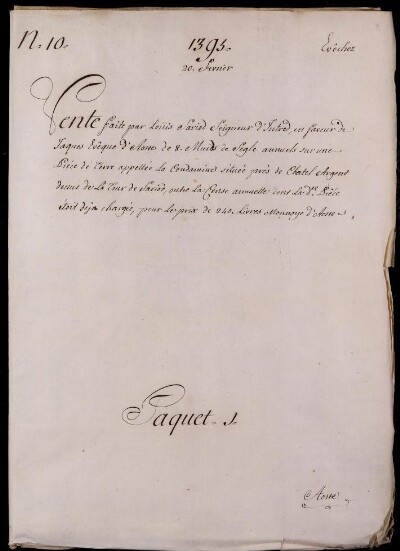 N. 10.
1395.
Evêchez
20. Fevrier
Vente faite par Louis Sariod Seigneur d'Introd, en faveur de
Jaques Evêque d'Aoste de 8. Muids de Segle annuels sur une
Piéce de Terre appellée la Condamine située prés de Chatel Argent
dessus de la Tour de Sariod, outre la Cense annuelle dont la Dte. Piéce
êtoit deja chargée, pour le prix de 240. Livres Monnoye d'Aoste
Paquet 1
Aoste